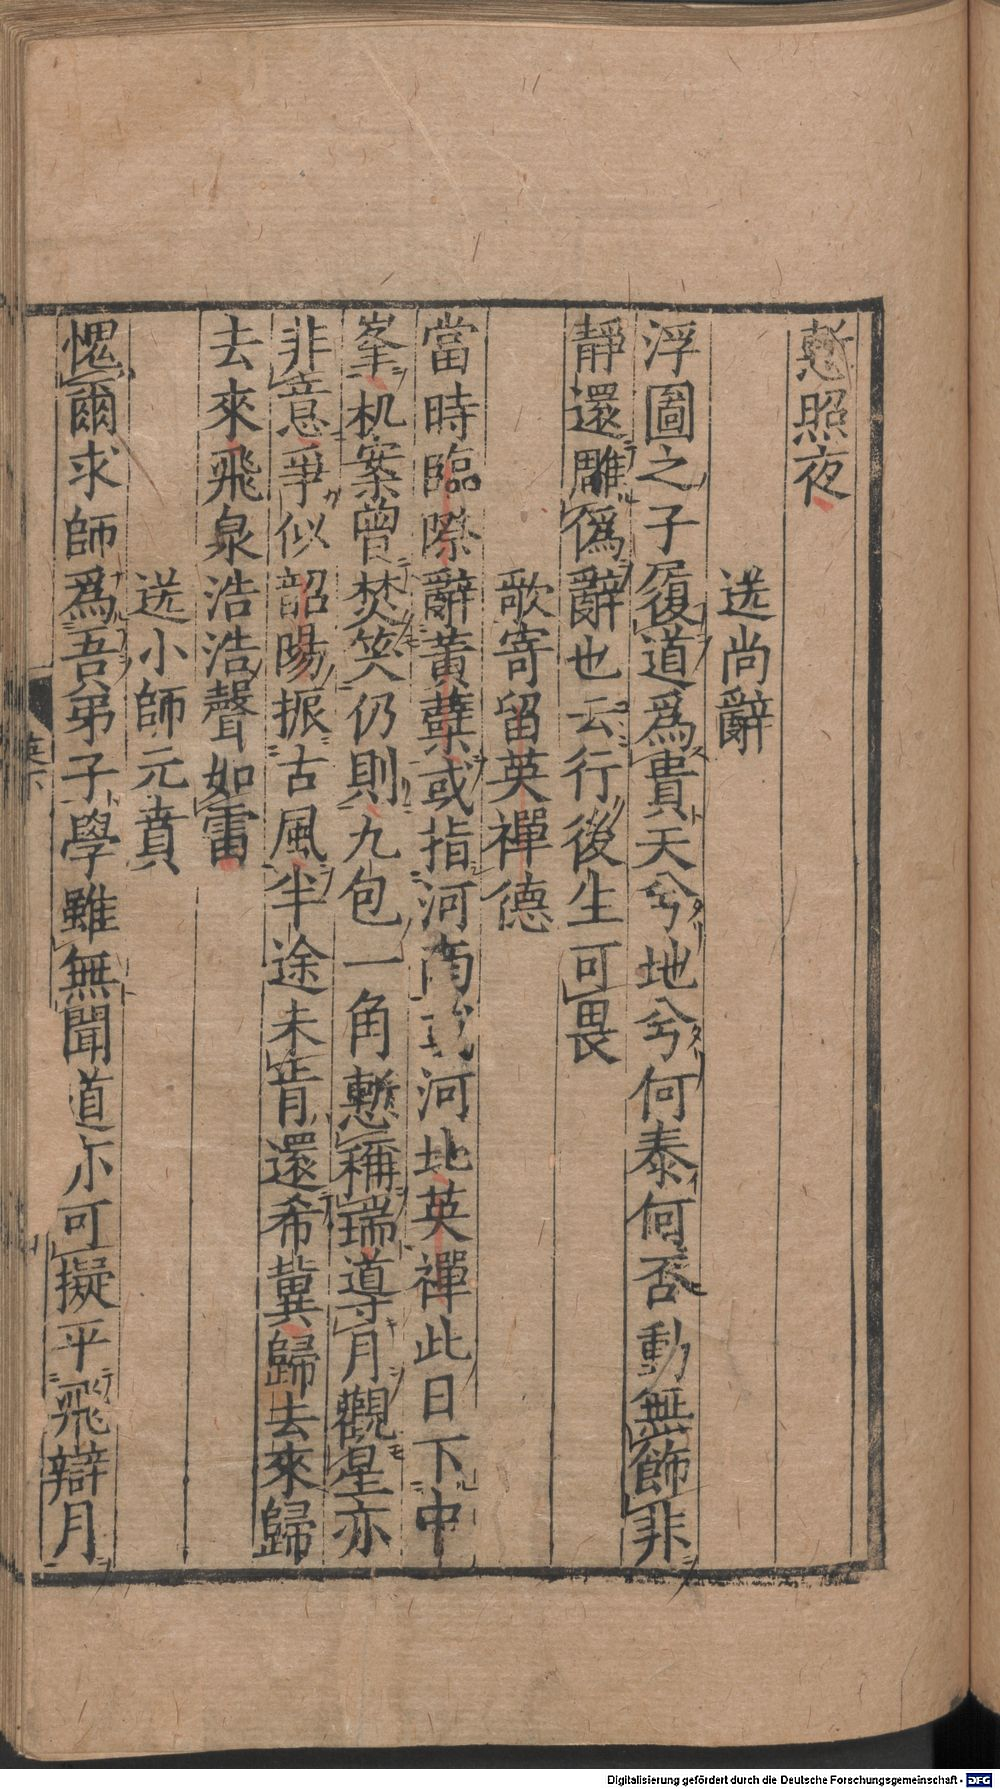 慙照夜
送尚辭
浮圖之子履道爲貴天兮地兮何泰何否動無飾非
靜還雕僞辭也云行後生可畏
歌寄留英禪德
當時臨際辭黃蘗或指河南或河北英禪此日下中
峯机案曾焚笑仍則九包一角慙稱瑞導月觀星亦
非意爭似韶陽振古風半途未肯還希冀歸去來歸
去來飛泉浩浩聲如雷
送小師元賁
愧爾求師爲吾弟子學雖無聞道尒可擬平飛辯月
Digitalisierung gefördert durch die Deutsche Forschungsgemeinschaft - DFG